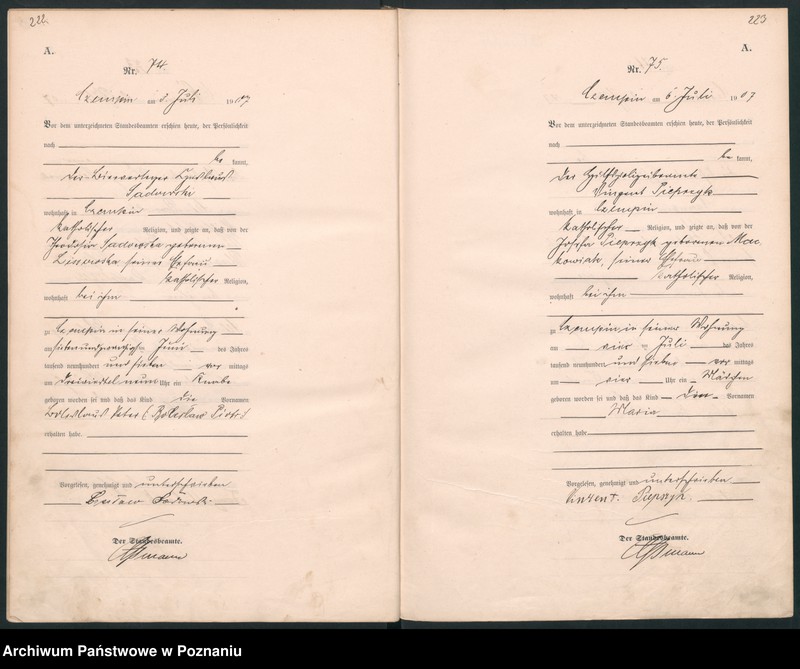 222.
A.
Nr. 74.
Czempin am 3. Juli 1907
Vor dem unterzeichneten Standesbeamten erschien heute, der Persönlichkeit
nach
be kannt,
der
Sadowski
wohnhaft in Czempin
katholischer Religion, und zeigte an, daß von der
Sadowska geborenen
seiner Ehefrau
katholischer Religion,
wohnhaft bei ihm
zu Czempin in seiner Wohnung
am siebenundzwanzigsten Juni des Jahres
tausend neunhundert und sieben vor mittags
um dreiviertel neun Uhr ein Knabe
geboren worden sei und daß das Kind die Vornamen
Boleslaus Peter (Bolesław Piotr)
erhalten habe.
Vorgelesen, genehmigt und unterschrieben
Der Standesbeamte.
223
A.
Nr. 75.
Czempin am 6. Juli 1907
Vor dem unterzeichneten Standesbeamten erschien heute, der Persönlichkeit
nach
be kannt,
der Hilfspolizeibeamte
Vinzent Pieprzyk
wohnhaft in Czempin
katholischer Religion, und zeigte an, daß von der
Josefa Pieprzyk geborenen Mac
kowiak, seiner Ehefrau
katholischer Religion,
wohnhaft bei ihm
zu Czempin, in seiner Wohnung
am vier ten Juli des Jahres
tausend neunhundert und sieben vor mittags
um vier Uhr ein Mädchen
geboren worden sei und daß das Kind den Vornamen
Maria
erhalten habe.
Vorgelesen, genehmigt und unterschrieben
Vinzent. Pieprzyk
Der Standesbeamte.
Archiwum Państwowe w Poznaniu